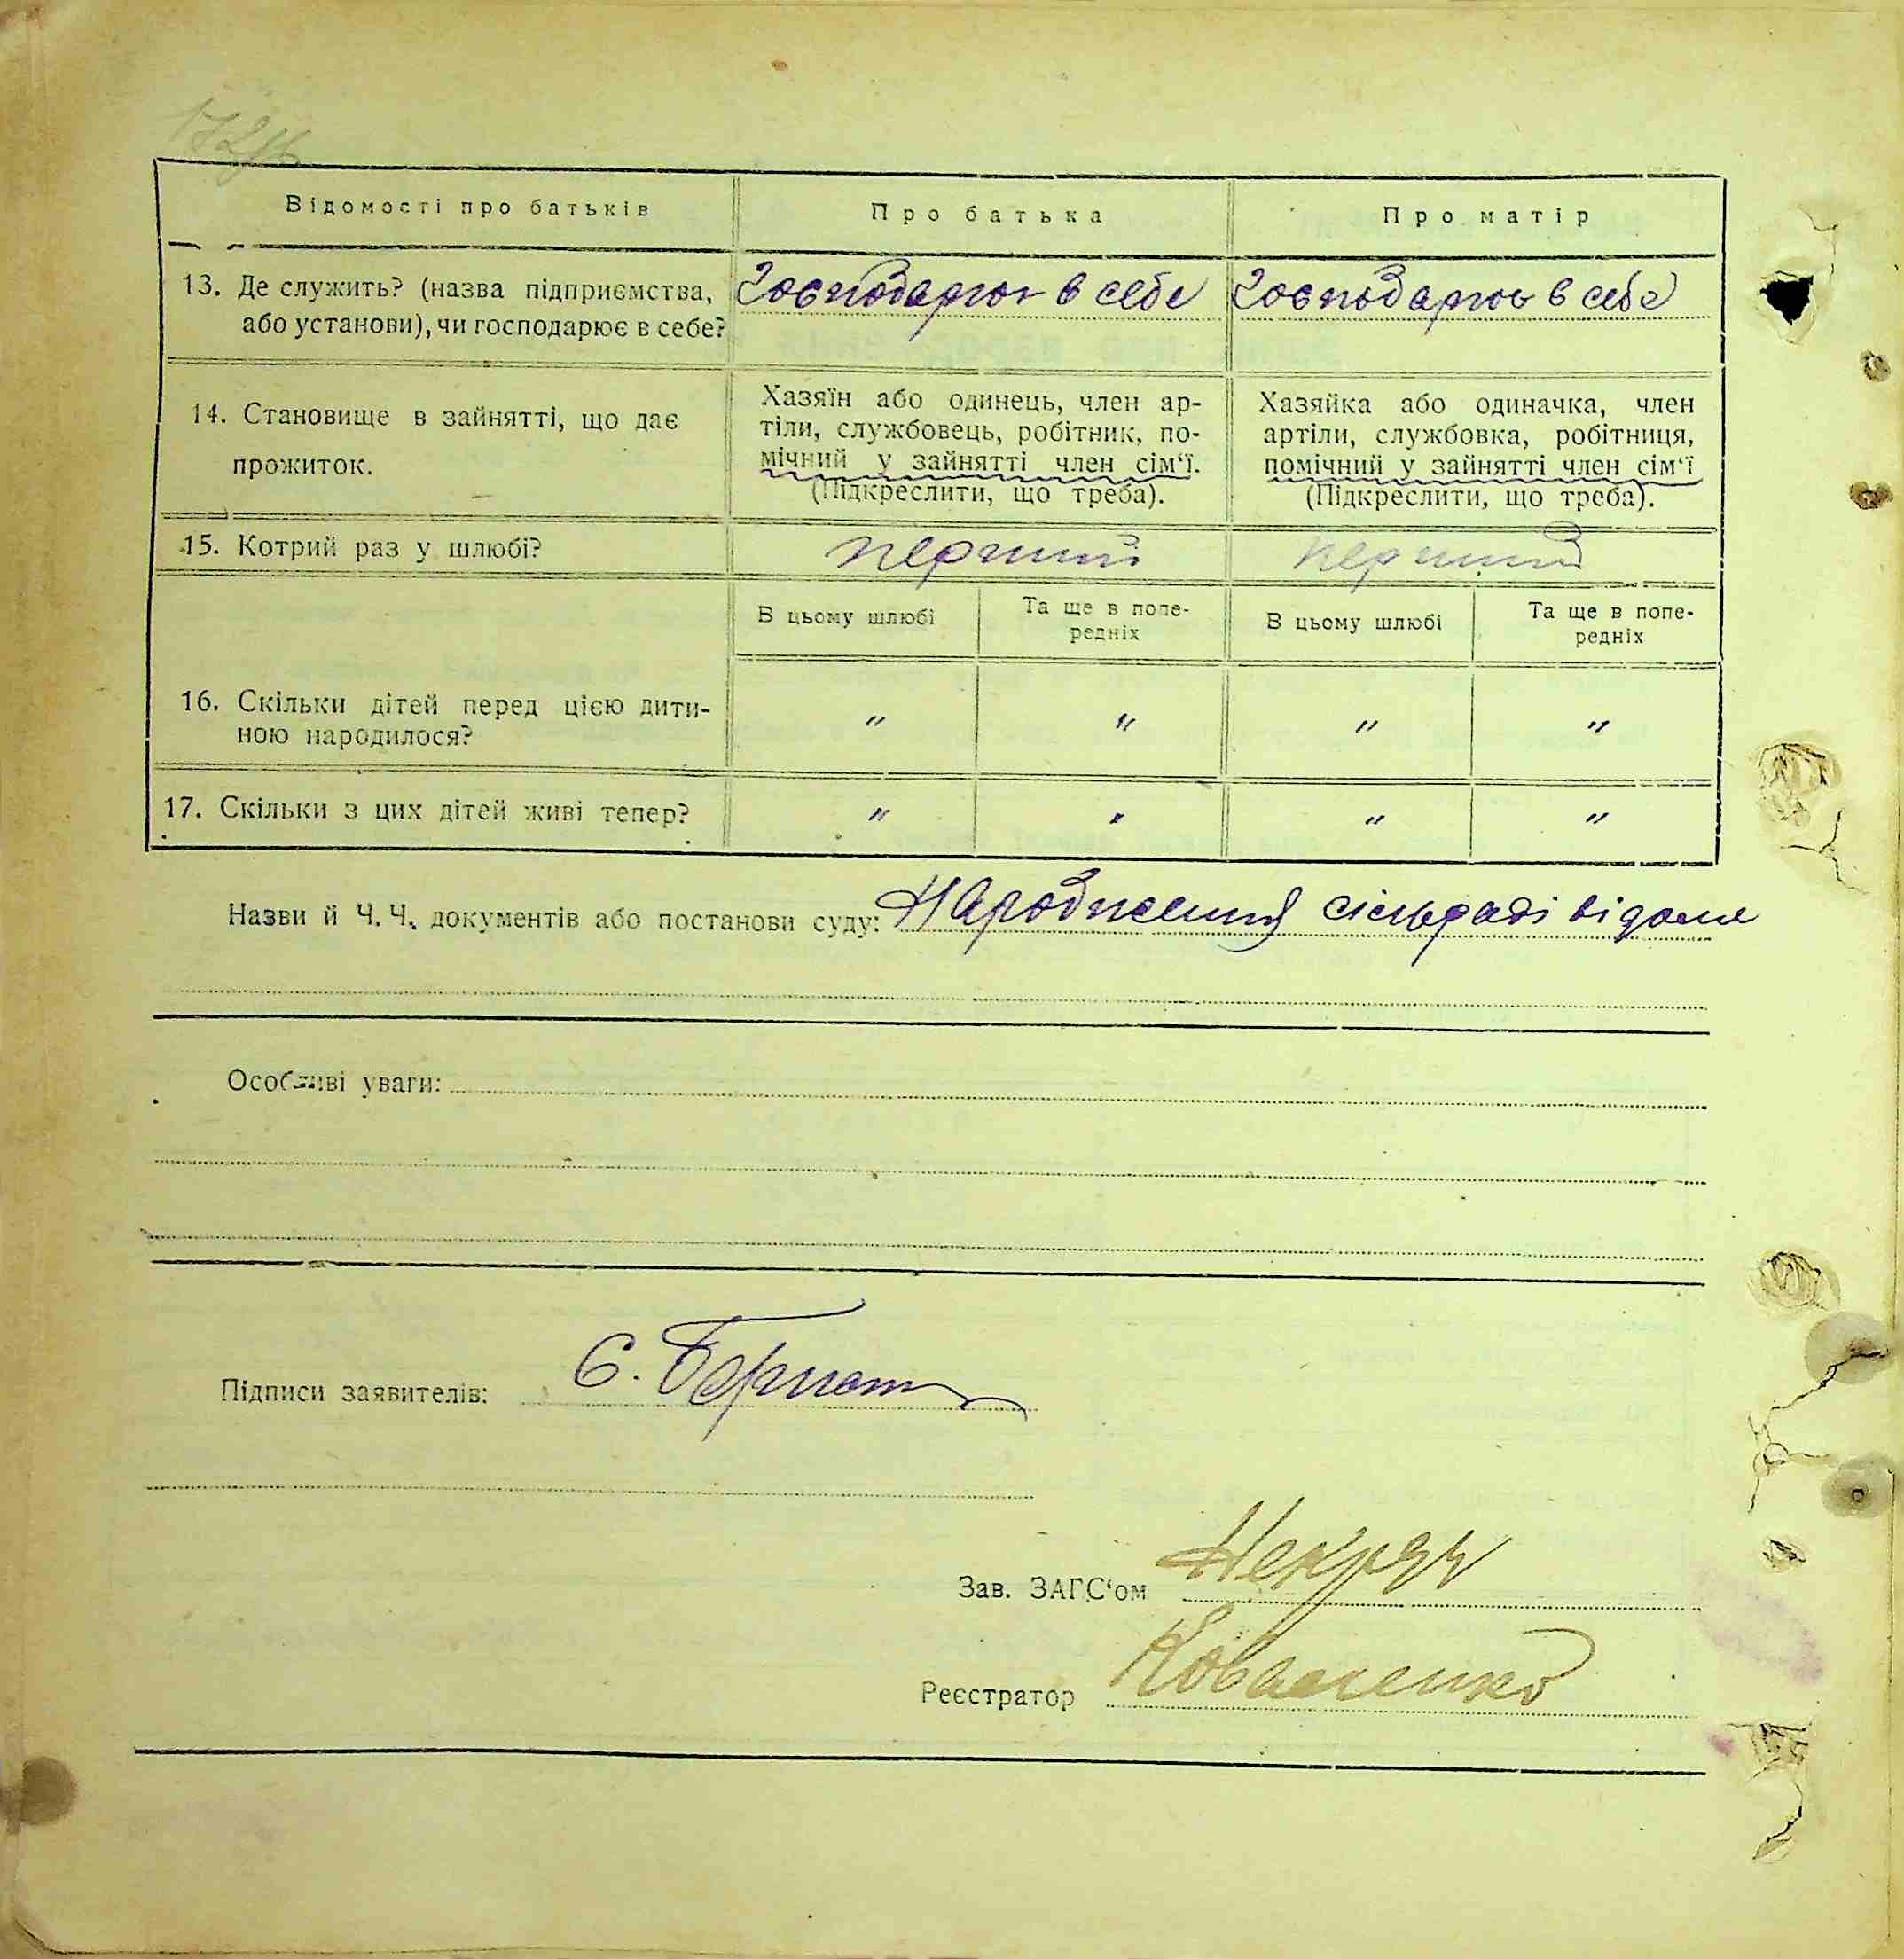 Відомості про батьків Про батька Про матір
13. Де служить? (назва підприємства, або установи), чи господарює в себе?
Господарює в себе
Господарює в себе
14. Становище в зайнятті, що дає
прожиток.
Хазяїн або одинець, член ар-
тіли, службовець, робітник, по-
мічний у зайнятті член сім‘ї.
(Підкреслити, що треба).
Хазяйка або одиначка, член
артіли, службовка, робітниця,
помічний у зайнятті член сім‘ї
(Підкреслити, що треба).
15. Котрий раз у шлюбі? перший перший
В цьому шлюбі
Та ще в попе-
редніх
В цьому шлюбі
Та ще в попе-
редніх
16. Скільки дітей перед цією дити-
ною народилося?
" " " "
17. Скільки з цих дітей живі тепер? " " " "
Назви й Ч.Ч. документів або постанови суду: Народження сільраді відоме
Особливі уваги:
Підписи заявителів: Є.
Зав. ЗАГС‘ом
Реєстратор Коваленко